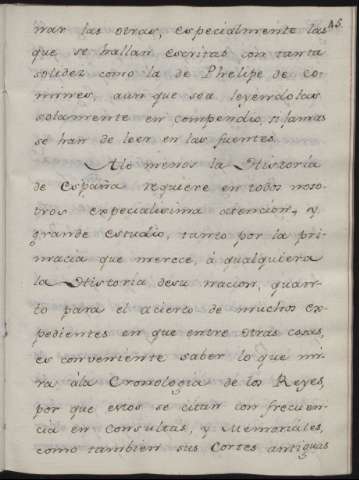 45.
nar las otras, especialmente las
que se hallan escritas con tanta
solidez como la de Phelipe de Co-
mines, aun que sea leyendolas
solamente en compendio, si jamas
se han de leer en las fuentes.
Alo menos la Historia
de España requiere en todos noso-
tros especialisima atencion, y
grande estudio, tanto por la pri-
macia que merece, à qualquiera
la Historia desu nacion, quan-
to para el acierto de muchos ex-
pedientes en que entre otras cosas,
es conveniente saber lo que mi-
ra àla Cronologia de los Reyes,
por que estos se citan con frecuen-
cia en Consultas, y Memoriales,
como tambien sus Cortes antiguas